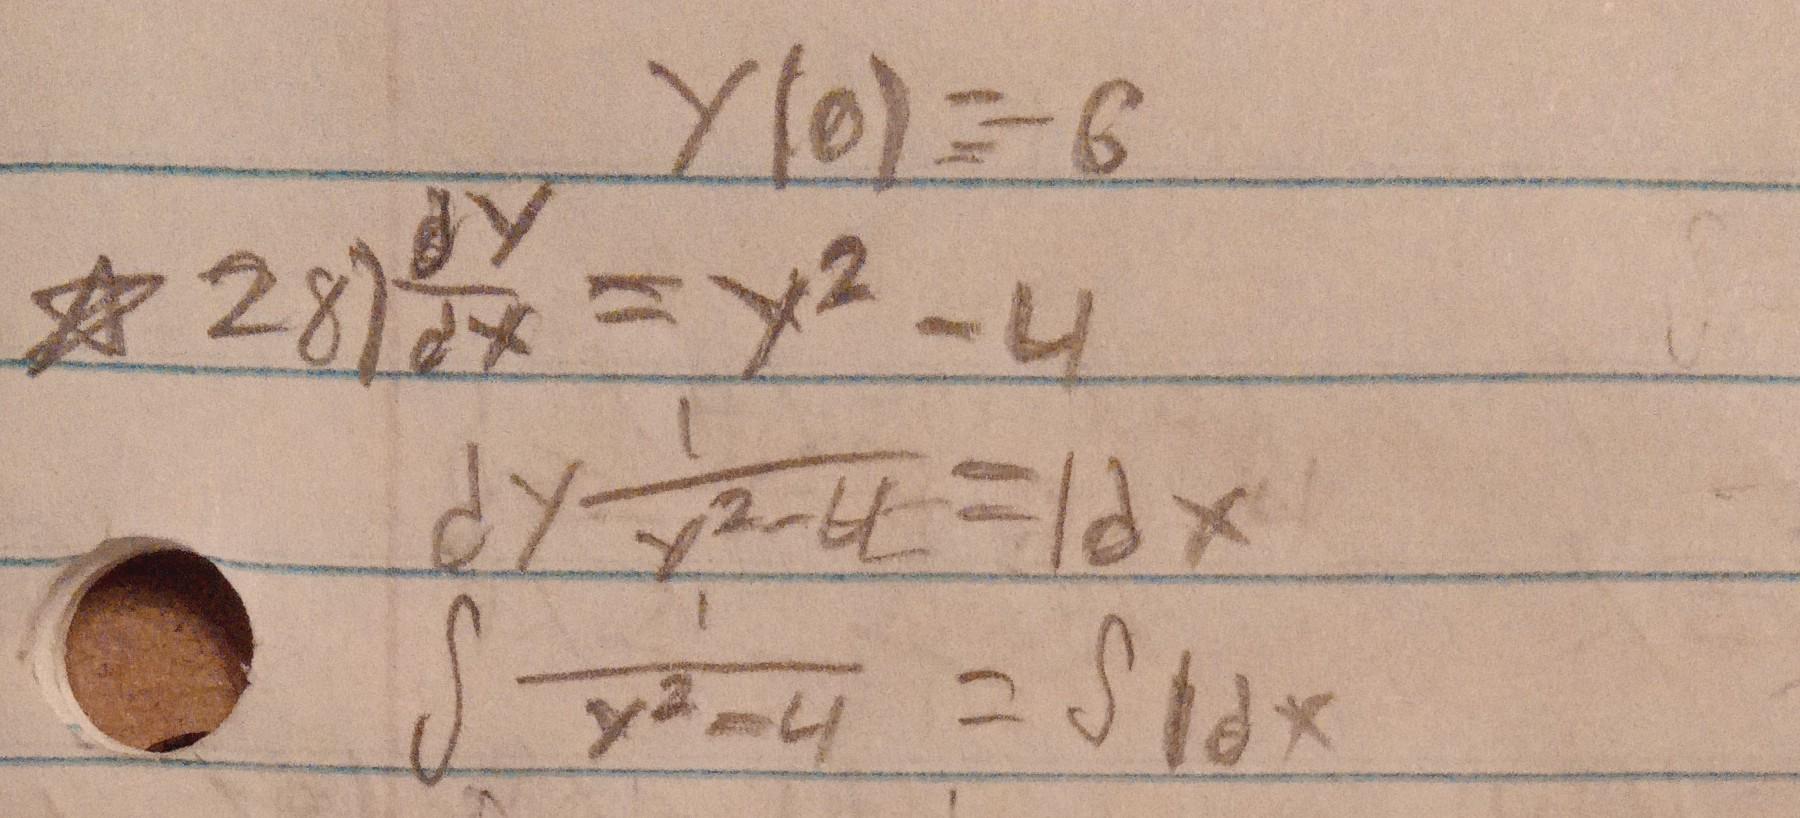 Y(0) = -6
☆ 28) dY/dx = y² - 4
dy 1/(y² - 4) = 1dx
∫ 1/(y² - 4) = ∫ 1dx